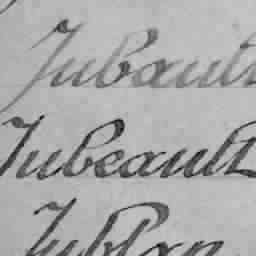 Jubault
Jubeault
Jublan